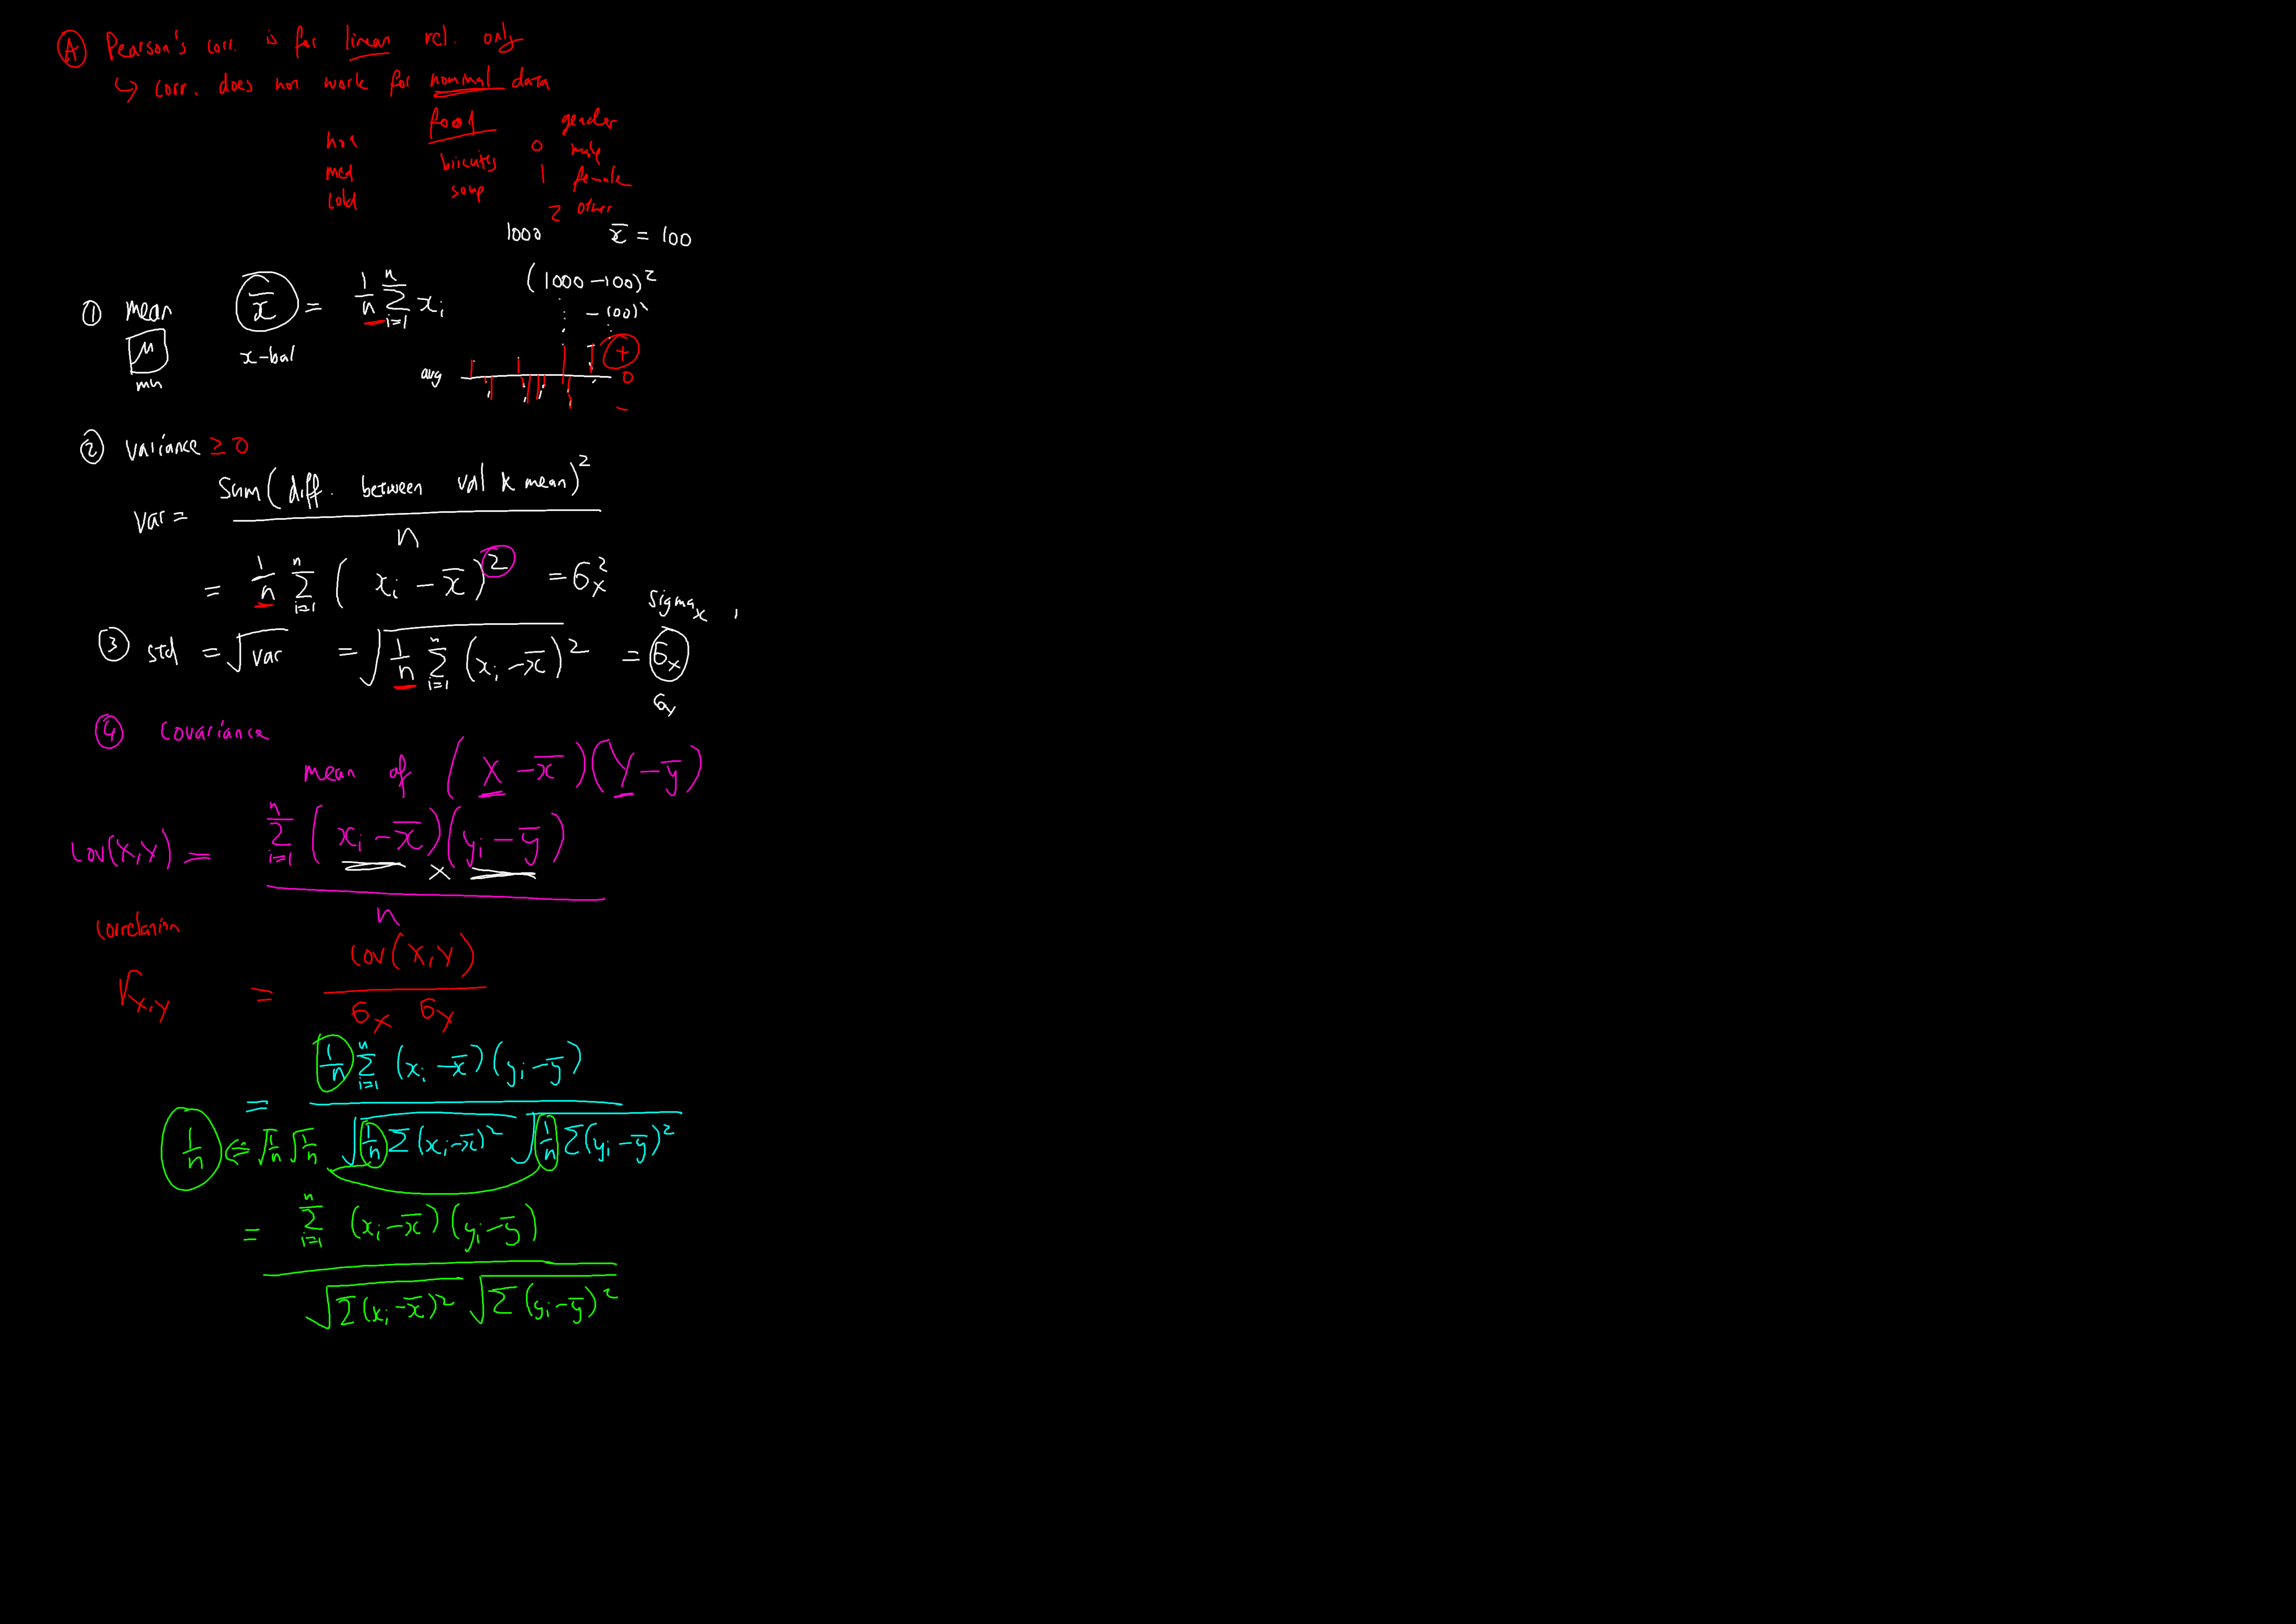 Ⓐ Pearson's corr. is for linear rel. only
↳ corr. does not work for nominal data
food gender
hot biscuits 0 male
med soup 1 female
cold 2 other
1000 x̄ = 100
(1000 - 100)²
① mean x̄ = 1/n Σ_{i=1}^{n} x_i
⋮ - 100)²
μ x-bar
mu
avg + 0 -
② variance ≥ 0
var = sum(diff. between val & mean)² / n
= 1/n Σ_{i=1}^{n} (x_i - x̄)² = σ_x²
sigma_x
③ std = √var = √(1/n Σ_{i=1}^{n} (x_i - x̄)²) = σ_x
σ_y
④ covariance
mean of (X - x̄)(Y - ȳ)
cov(X,Y) = Σ_{i=1}^{n} (x_i - x̄)(y_i - ȳ) / n
×
correlation
r_{X,Y} = cov(X,Y) / σ_X σ_Y
= 1/n Σ_{i=1}^{n} (x_i - x̄)(y_i - ȳ) / √(1/n Σ(x_i - x̄)²) √(1/n Σ(y_i - ȳ)²)
1/n ⇐ √(1/n) √(1/n)
= Σ_{i=1}^{n} (x_i - x̄)(y_i - ȳ) / √(Σ(x_i - x̄)²) √(Σ(y_i - ȳ)²)